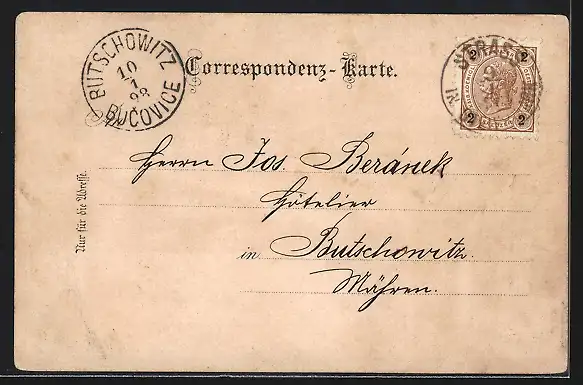 BUTSCHOWITZ
10
1
98
BUČOVICE
Correspondenz-Karte.
2 2
2 2
An
Herrn Jos. Beránek
Hôtelier
in Butschowitz
Mähren.
Nur für die Adresse.